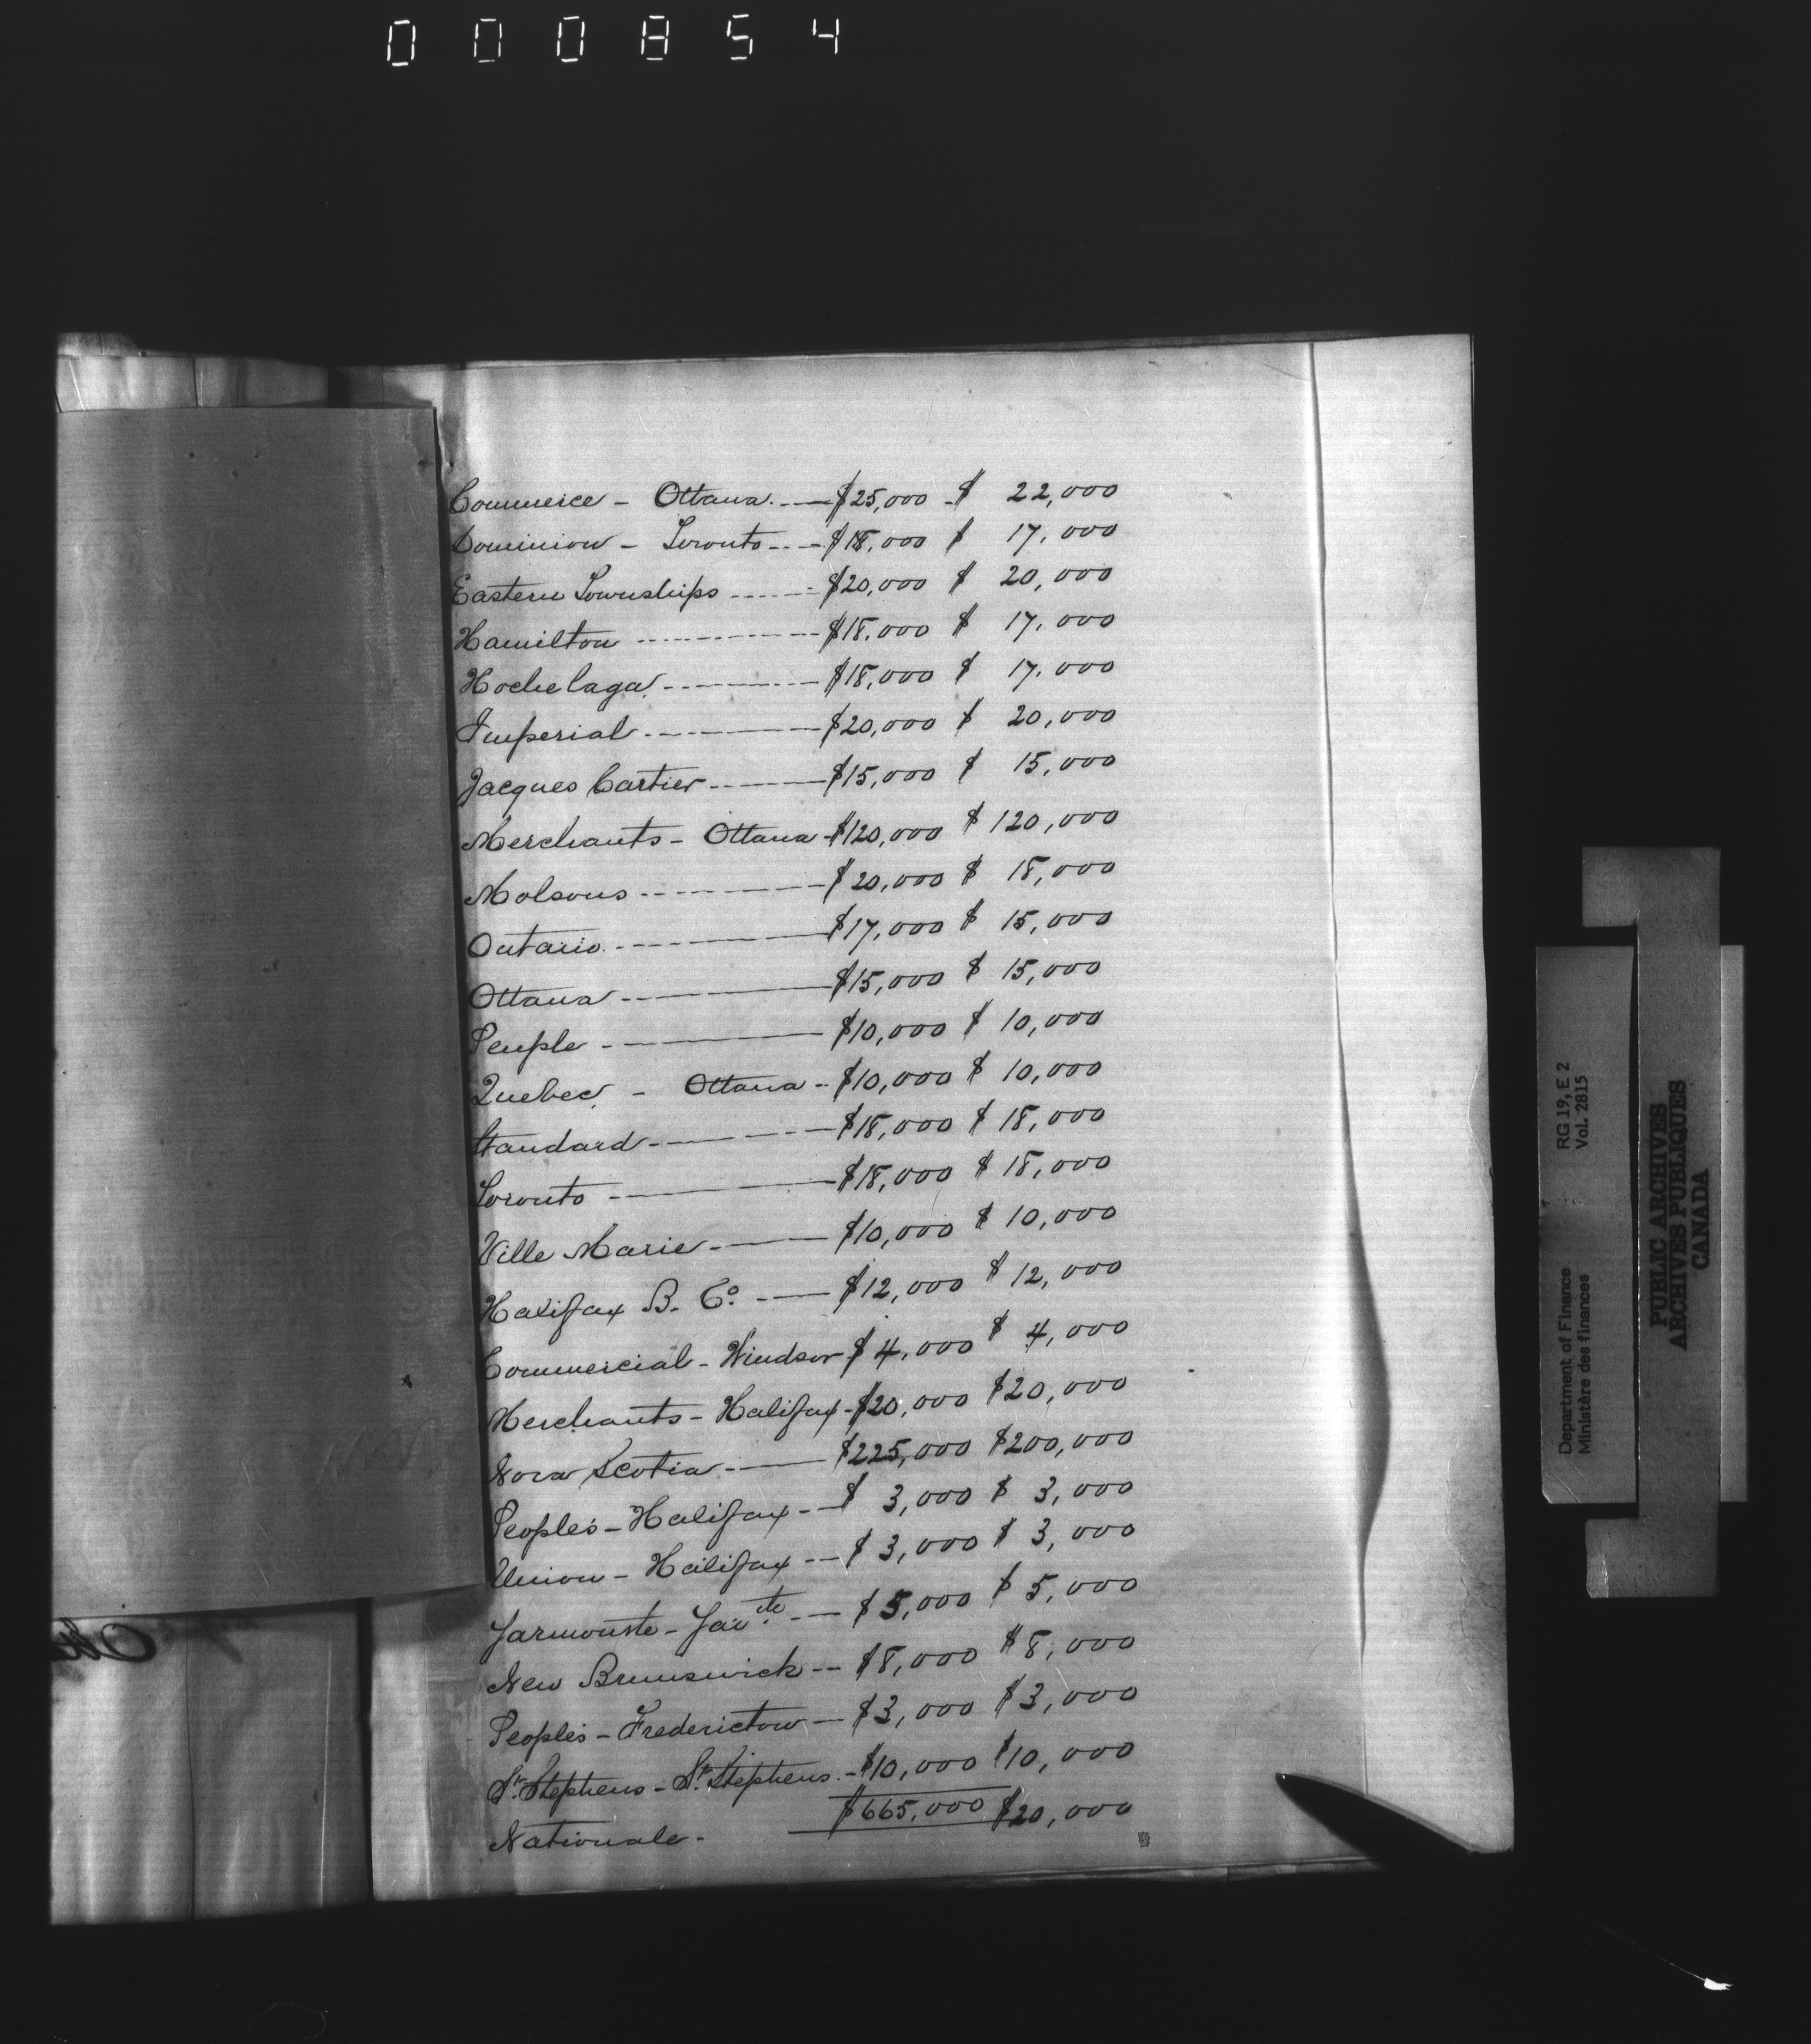 000854
Commerce - Ottawa. ---- $25,000 - $ 22,000
Dominion - Toronto ---- $18,000 $ 17,000
Eastern Townships ------ $20,000 $ 20,000
Hamilton ------------ $18,000 $ 17,000
Hochelaga. ---------- $18,000 $ 17,000
Imperial ---------- $20,000 $ 20,000
Jacques Cartier ------ $15,000 $ 15,000
Merchants - Ottawa - $120,000 $ 120,000
Molsons ---------- $20,000 $ 18,000
Ontario. ---------- $17,000 $ 15,000
Ottawa ---------- $15,000 $ 15,000
Peuple ---------- $10,000 $ 10,000
Quebec. - Ottawa -- $10,000 $ 10,000
Standard -------- $18,000 $ 18,000
Toronto -------- $18,000 $ 18,000
Ville Marie ------ $10,000 $ 10,000
Halifax B. Co. ---- $12,000 $ 12,000
Commercial - Windsor $ 4,000 $ 4,000
Merchants - Halifax - $20,000 $20,000
Nova Scotia ------ $225,000 $200,000
Peoples - Halifax --- $ 3,000 $ 3,000
Union - Halifax --- $ 3,000 $ 3,000
Yarmouth - --- $5,000 $ 5,000
New Brunswick -- $8,000 $8,000
Peoples - Fredericton -- $3,000 $3,000
St. Stephens - St. Stephens. - $10,000 $10,000
$665,000
Nationale - $20,000
Department of Finance RG 19, E 2
Ministère des finances Vol. 2815
PUBLIC ARCHIVES
ARCHIVES PUBLIQUES
CANADA